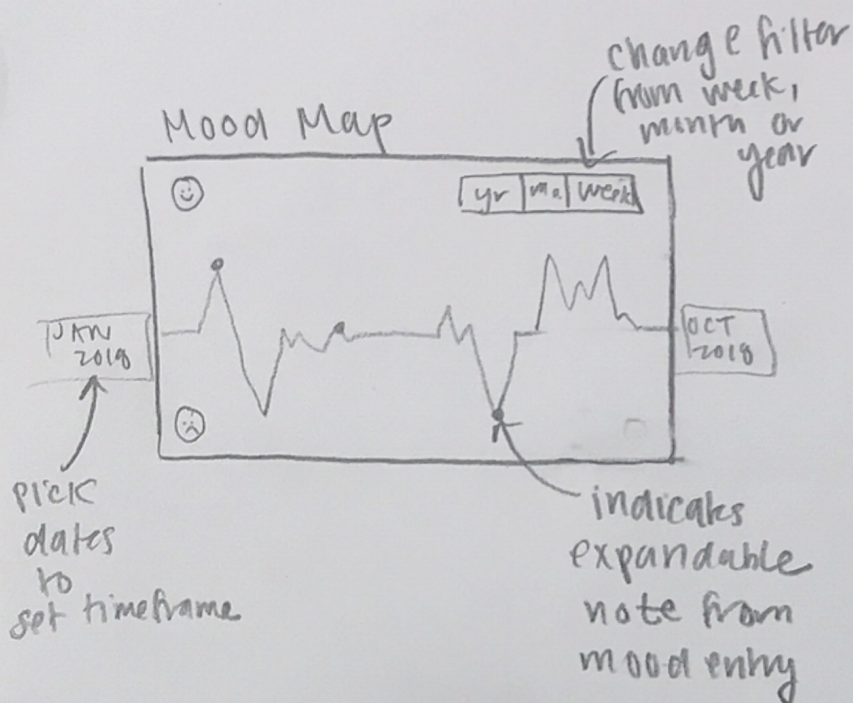 change filter
from week,
month or
year
Mood Map
yr mo week
JAN
2018
OCT
2018
pick
dates
to
set timeframe
indicates
expandable
note from
mood entry